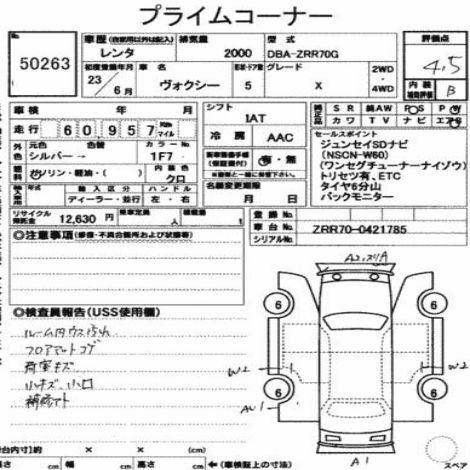 プライムコーナー
50263
車歴(自家用以外は記入) 排気量 型式
レンタ 2000 DBA-ZRR70G
初度登録年月 車名 グレード 2WD
23 ヴォクシー 5 X
6月 4WD
評価点
4.5
内装 B
車検 年 月
走行 60957 Km マイル
外色 元色 色替 カラーNo.
シルバー→ 1F7
ガソリン・軽油・( ) 内装色 クロ
年式 輸入区分 ハンドル
ディーラー・並行 左・右
シフト
IAT
冷房 AAC
有・無
名義変更期限
月 日
純正品 SR 純AW PS PW
カワ TV ナビ エアB
セールスポイント
ジュンセイSDナビ
(NSCN-W60)
(ワンセグチューナーナイゾウ)
トリセツ有、ETC
タイヤ6分山
バックモニター
リサイクル預託金 12,630 円 乗車定員 人 積載量
登録No.
車台No. ZRR70-0421785
シリアルNo.
◎注意事項(修復・不具合箇所および状態等)
◎検査員報告(USS使用欄)
ルーム内ウス汚れ
フロアマットコゲ
荷室キズ
小キズ、小凹
補修アト
A2
6 6
W2 W2
6 6
AU1
A1
スペア
荷台内寸)約 × × (cm)
高さ cm 幅 cm 高さ cm ←(車検証上の寸法)